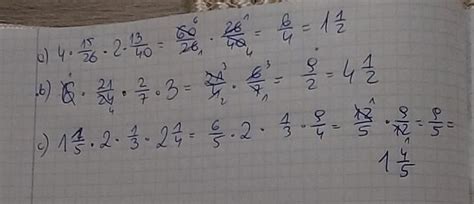 a) 4 · 15/26 · 2 · 13/40 = 60/26 · 26/40 = 6/4 = 1 1/2
b) 6 · 21/24 · 2/7 · 3 = 21/4 · 6/7 = 9/2 = 4 1/2
c) 1 1/5 · 2 · 1/3 · 2 1/4 = 6/5 · 2 · 1/3 · 9/4 = 12/5 · 9/12 = 9/5 =
1 4/5